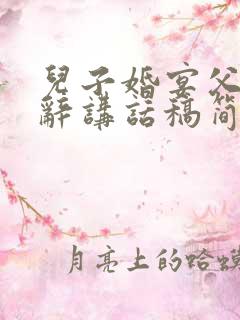 兒子婚宴父
辭講話稿简
月亮上的哈蟆